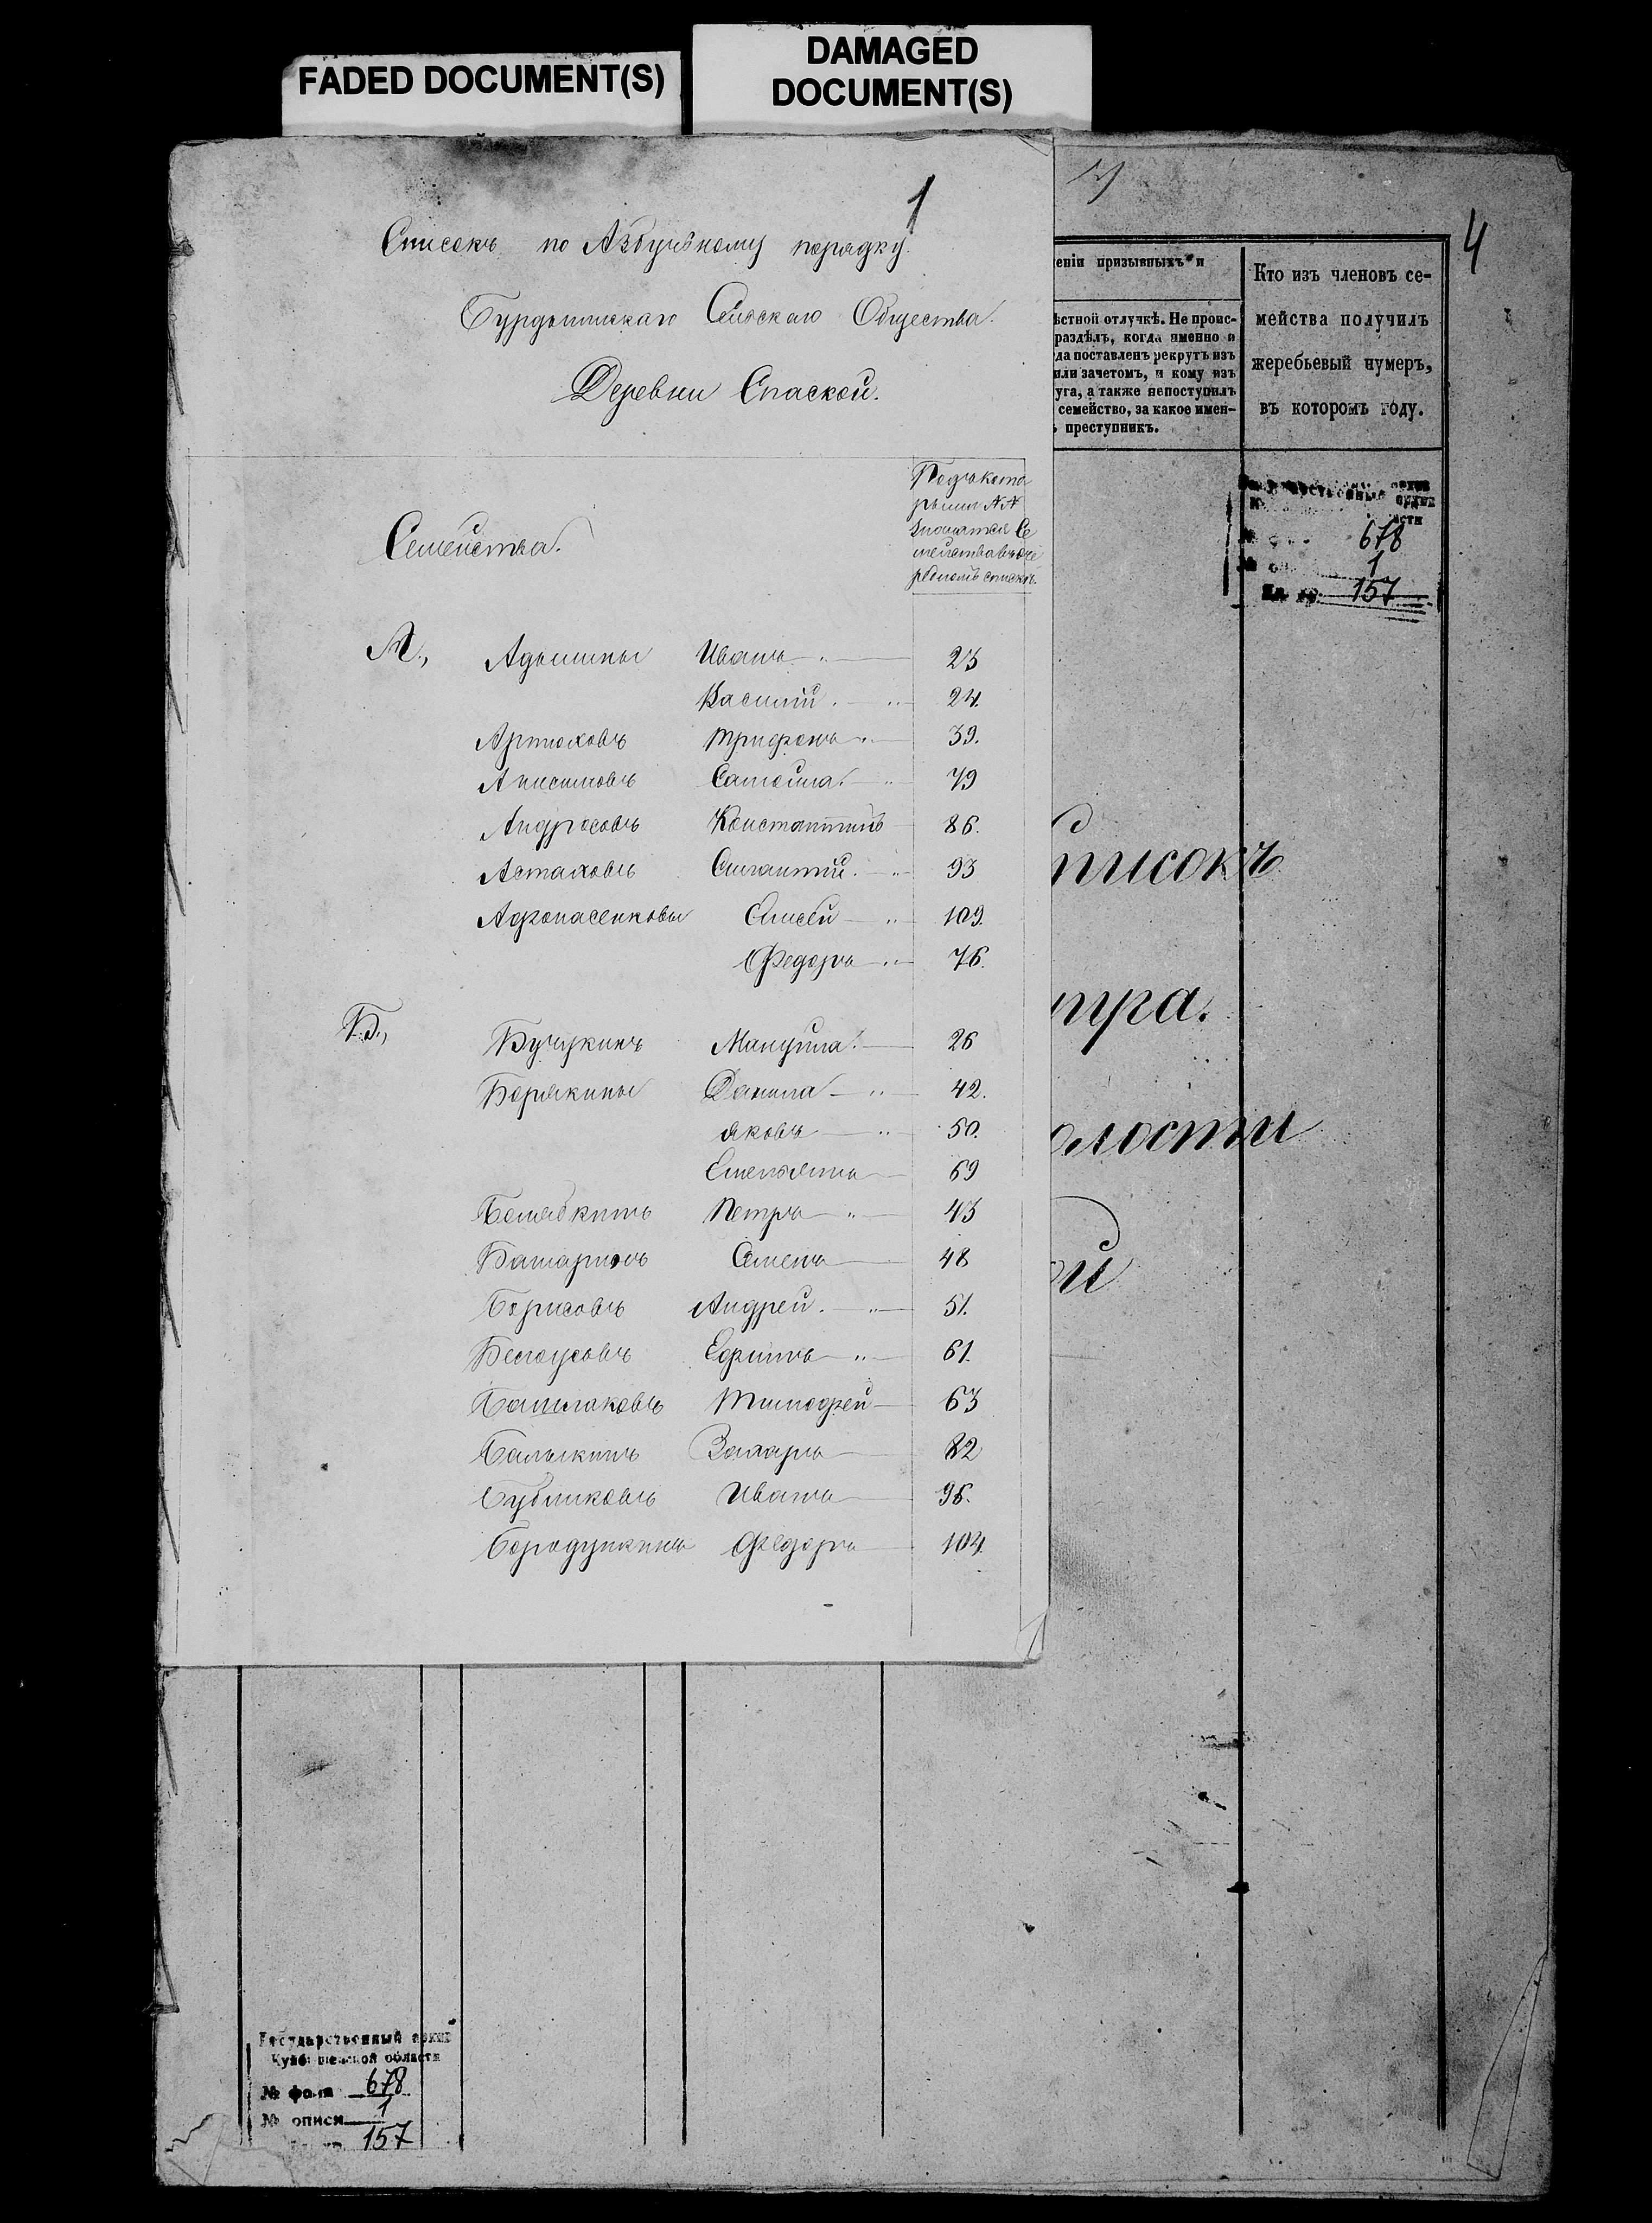 FADED DOCUMENT(S)
DAMAGED
DOCUMENT(S)
1
Списокъ по Азбучному порядку
Сельскаго Общества.
Деревни Спаской.
Семейства.
Подъ кото
рыми №№
значатся Се
мейства въ оче
редномъ списке.
А., Адышины Иванъ 23
Василий. 24.
Артюховъ Трифонъ 39.
Анисимовъ Самойла. 79
Андросовъ Константинъ 86.
Астаховъ 93
Афонасенковы Елисей 109.
Федоръ 76.
Б., Бучукинъ Мануйла. 26
Борякины Данила 42.
Яковъ 50.
Емельянъ 69
Петръ 43
Семенъ 48
Борисовъ Андрей. 51.
Белоусовъ Ефимъ 61.
Башлаковъ Тимофей 63
Балыкинъ Захаръ 82
Бубликовъ Иванъ 96.
Бородункинъ Федоръ 104.
4
еніи призывныхъ и
ѣстной отлучкѣ. Не проис-
раздѣлъ, когда именно и
да поставленъ рекрутъ изъ
или зачетомъ, и кому изъ
уга, а также непоступилъ
семейство, за какое имен-
преступникъ.
Кто изъ членовъ се-
мейства получилъ
жеребьевый нумеръ,
въ которомъ году.
678
1
157
писокъ
тра.
олости
ой
Государственный архив
Куйбышевской области
№ фонда 678
№ описи 1
157